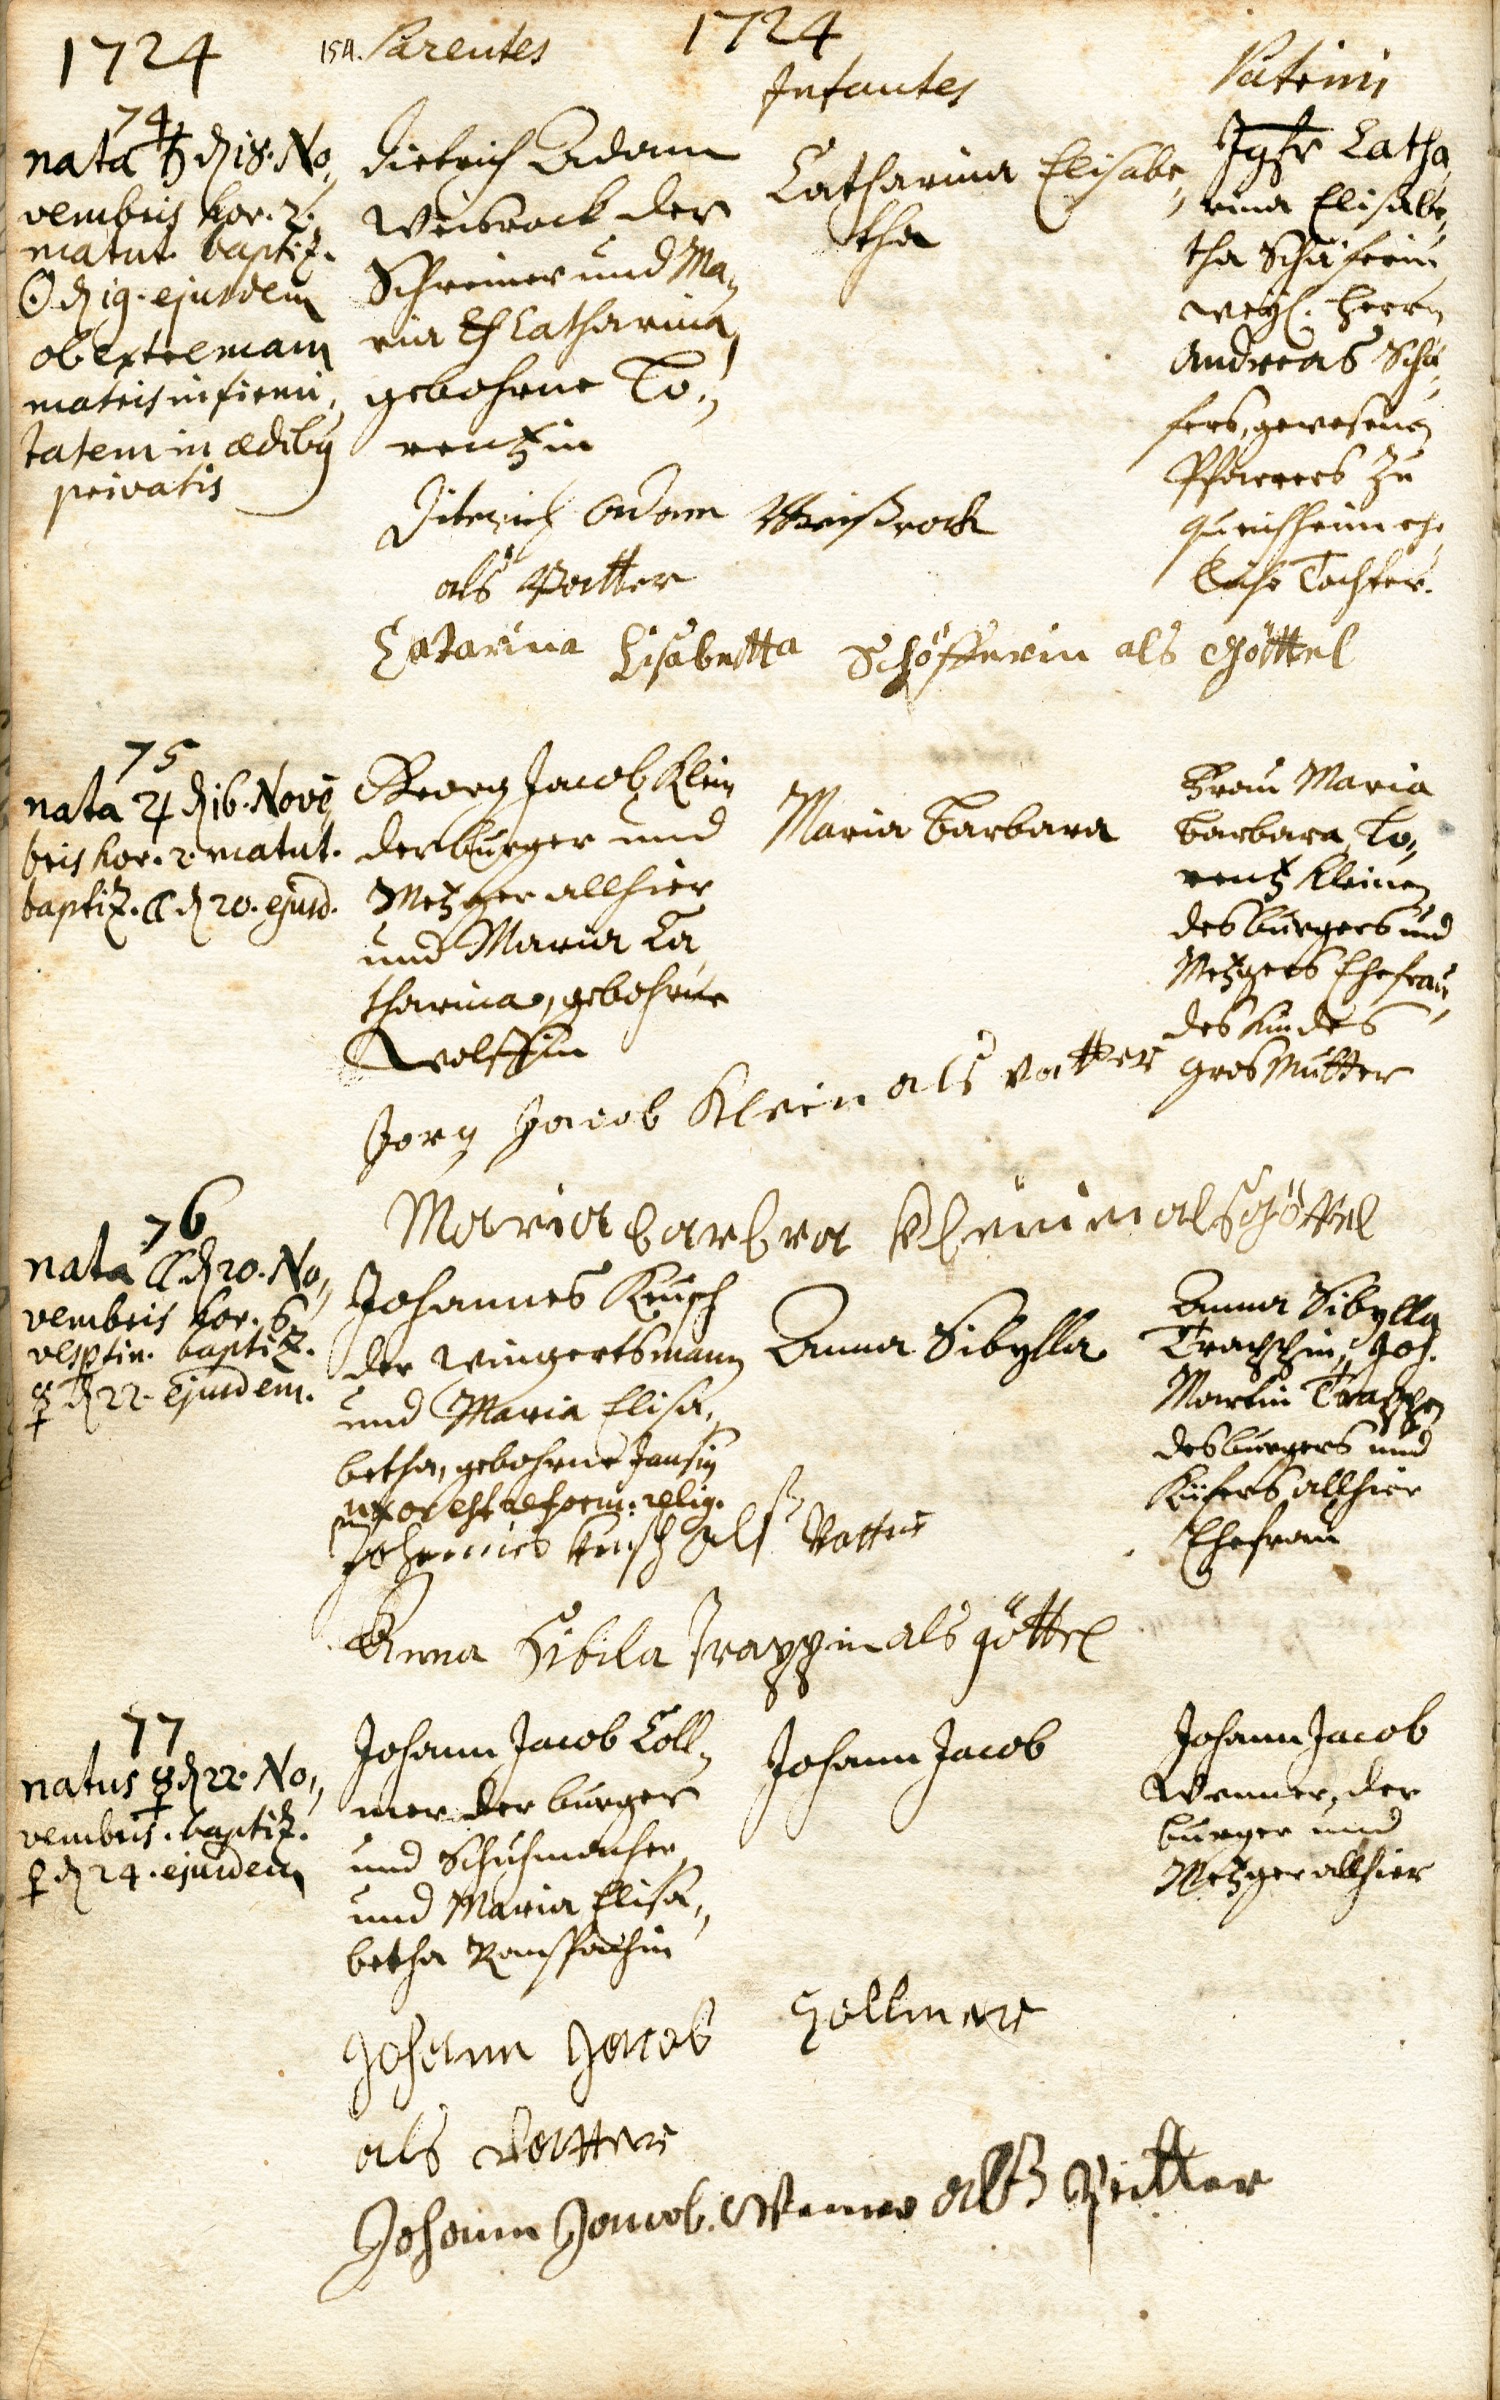 1724
154. Parentes
1724
Infantes
Patrini
74.
nata ♄ d 18. No,,
vembris hor. 2.
matut. baptiz.
☉ d 19. ejusdem
ob extremam
matris infirmi,,
tatem in ædibus
privatis
Dietrich Adam
Weisrock der
Schreiner und Ma,,
ria Catharina
gebohrne Lo,,
rentzin
Catharina Elisabe,,
tha
Jgfr Catha,,
rina Elisabe,,
tha Schäferin
weyl. Herrn
Andreas Schä,,
fers, gewesenen
Pfarrers zu
Queichheim ehe,,
liche Tochter.
Diterich Adam Weißrock
als Vatter
Catarina Lisabetta Schöfferin als Göttel
75
nata ♃ d 16. Novē,,
bris hor. 2. matut.
baptiz. ☾ d 20. ejusd.
Georg Jacob Klein
der burger und
Metzger allhier
und Maria Ca
tharina, gebohrne
Wolffin
Maria Barbara
Frau Maria
Barbara, Lo,,
rentz Kleinen
des burgers und
Metzgers Ehefrau,,
des Kindes
Gros Mutter
Jorg Jacob Klein als vatter
Maria barbra Kleinin als Göttel
76
nata ☾ d 20. No,,
vembris hor. 6.
vesptin. baptiz.
☿ d 22. Ejusdem.
Johannes Kusch
der Wingertsmann
und Maria Elisa,,
betha, gebohrne Jansin
uxor est reform. relig.
Anna Sibylla
Anna Sibylla
Trappin, Joh.
Martin Trappen
des burgers und
Küfers allhier
Ehefrau
Johannes Kusch alß Vatter
Anna Sibila Trappin als göttel
77
natus ☿ d 22. No,,
vembris. baptiz.
♀ d 24. ejusdem
Johann Jacob Coll,,
mer der burger
und Schuhmacher
und Maria Elisa,,
betha Ranspachin
Johann Jacob
Johann Jacob
Wenner, der
burger und
Metzger allhier
Johann Jacob Collmer
als vatter
Johann Jacob Wenner alß Petter